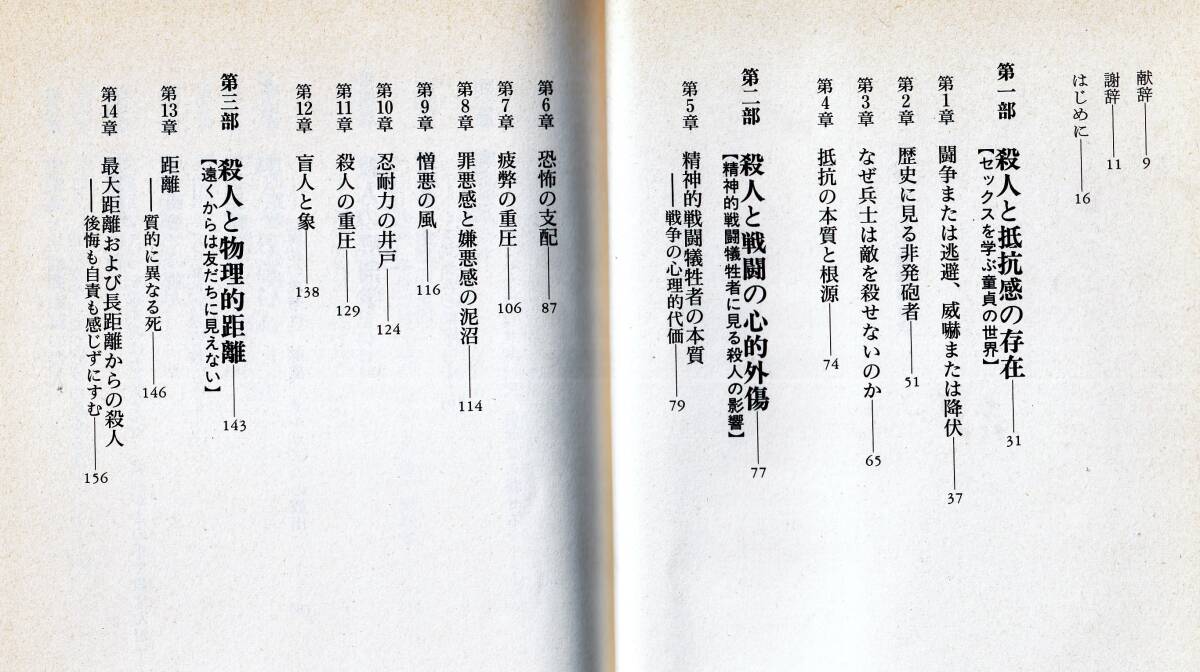 献辞――9
謝辞――11
はじめに――16
第一部 殺人と抵抗感の存在――31
【セックスを学ぶ童貞の世界】
第1章 闘争または逃避、威嚇または降伏――37
第2章 歴史に見る非発砲者――51
第3章 なぜ兵士は敵を殺せないのか――65
第4章 抵抗の本質と根源――74
第二部 殺人と戦闘の心的外傷――77
【精神的戦闘犠牲者に見る殺人の影響】
第5章 精神的戦闘犠牲者の本質
――戦争の心理的代価――79
第6章 恐怖の支配――87
第7章 疲弊の重圧――106
第8章 罪悪感と嫌悪感の泥沼――114
第9章 憎悪の風――116
第10章 忍耐力の井戸――124
第11章 殺人の重圧――129
第12章 盲人と象――138
第三部 殺人と物理的距離――143
【遠くからは友だちに見えない】
第13章 距離
――質的に異なる死――146
第14章 最大距離および長距離からの殺人
――後悔も自責も感じずにすむ――156